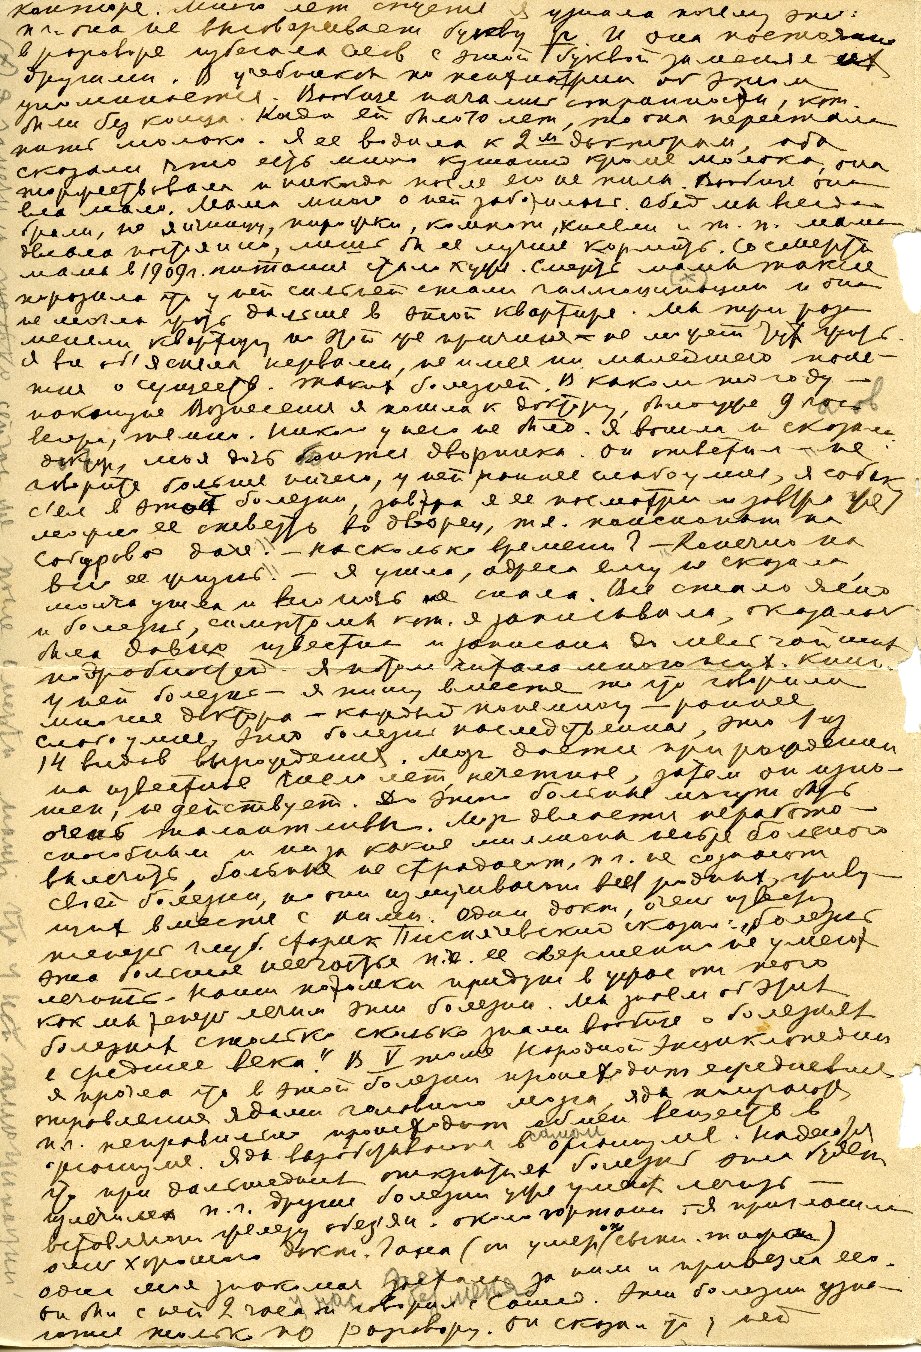 конторе. Много лет спустя я узнала почему это:
п.ч. она не выговаривает букву р. И она постоянно
в разговоре избегала слов с этой буквой заменяя их
другими. В учебниках по психиатрии об этом
упоминается. Вообще начались странности, кот.
были без конца. Когда ей было лет, то она перестала
пить молоко. Я ее водила к 2м докторам, оба
сказали что есть много кушаний кроме молока, она
торжествовала и никогда после его не пила. Вообще она
ела мало. Мама много о ней заботилась. Обед мы всегда
брали, но яичницу, пирожки, компот, кисели и т.п. мама
делала постоянно, лишь бы ее лучше кормить. Со смерти
мамы в 1909г. питание стало хуже. Смерть мамы также
поразила что у ней сильней стали галлюцинации и она
не могла жить дальше в этой квартире. Мы три раза
меняли квартиру по этой же причине – не может тут жить.
Я все об'ясняла нервами, не имея ни малейшего поня-
тия о существ. таких болезней. В каком то году –
накануне Вознесения я пошла к доктору, было уже 9 часов
вечера, темно. Никого у него не было. Я вошла и сказала
дктр, моя дочь боится дворника. Он ответил – не
говорите больше ничего, у ней раннее слабоумие, я собаку
с'ел в этой болезни, завтра я ее посмотрю и завтра же
можно ее свезть во дворец, т.е. пансионат на
Сабурову даче. – На сколько времени? – Конечно на
всю ее жизнь. – Я ушла, адреса ему не сказала,
молча ушла и всю ночь не спала. Все стало ясно
и болезнь, симптомы кот. я записывала, оказалось
была давно известна и записана до мельчайших
подробностей. Я потом читала много псих. книг.
У ней болезнь – я пишу вместе то что говорили
многие доктора – каждый понемногу – раннее
слабоумие, это болезнь наследственная, это 1 из
14 видов вырождения. Мозг дается при рождении
на известное число лет, нечетное, затем он изно-
шен, не действует. До этого больные могут быть
очень талантливы. Мозг делается неработо-
способным и ни за какие миллионы нельзя больного
вылечить, больные не страдают, п.ч. не сознают
своей болезни, но они измучивают всех родных, живу-
щих вместе с ними. Один докт, очень известн
теперь глуб. старик сказал: „Болезнь
эта большое несчастье п.ч. ее совершенно не умеют
лечить. Наши потомки придут в ужас от того
как мы теперь лечим эти болезни. Мы знаем об этих
болезнях столько сколько знали вообще о болезнях
в средние века." В V томе Народной Энциклопедии
я прочла что в этой болезни происходит ежедневное
отравление ядами головного мозга, яды
п.ч. неправильно происходит обмен веществ в
организме. Яды вырабатываются в самом организме. Надежда
что при дальнейших открытиях болезнь эта будет
излечима п.ч. другие болезни уже умеют лечить –
вставляют железу обезьян. около гортани. – Я пригласила
очень хорошего докт. Гана (он умер от сыпн. тифа)
одна моя знакомая заехала за ним и привезла его.
у нас без меня
он был с ней 2 часа и говорил с Сашей. Эти болезни узна-
ются только по разговору. Он сказал что у ней